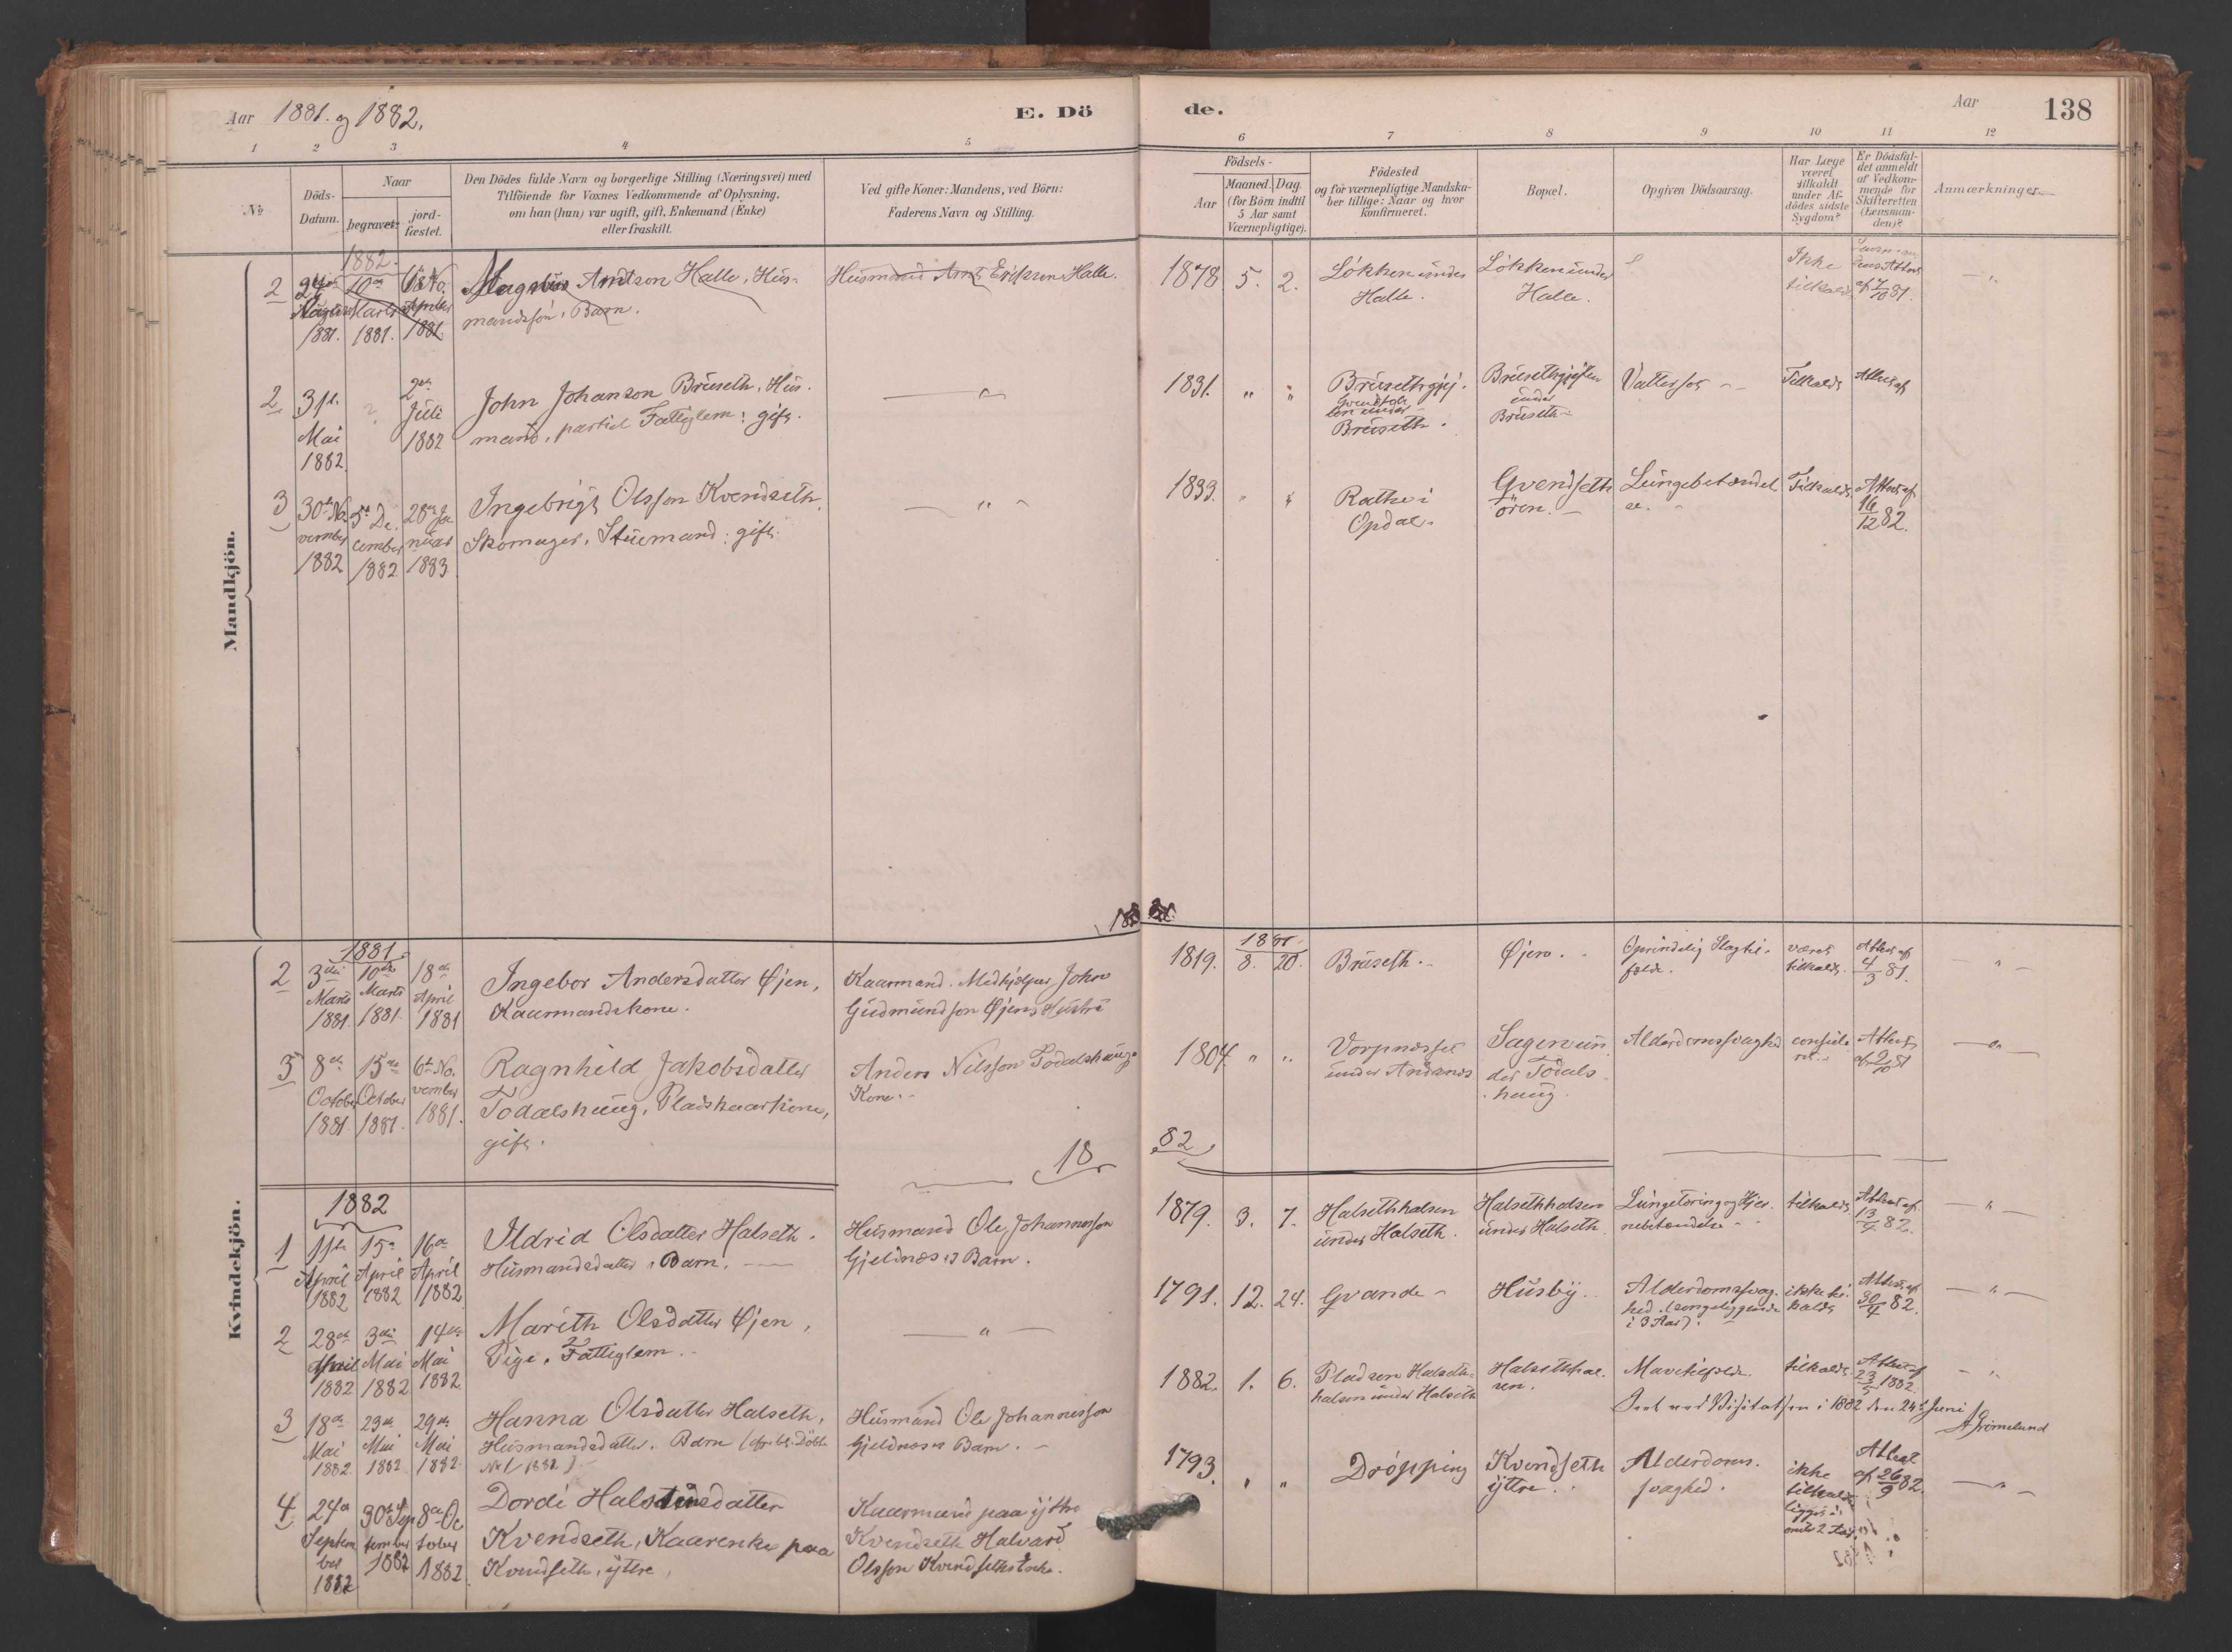 Aar 1881. og 1882.
E. Dö
de.
Aar
138
1 2 3 4 5 6 7 8 9 10 11 12
№
Döds-
Datum.
Naar
begravet:
jord-
fæstet.
Den Dödes fulde Navn og borgerlige Stilling (Næringsvei) med
Tilföiende for Voxnes Vedkommende af Oplysning,
om han (hun) var ugift, gift, Enkemand (Enke)
eller fraskilt.
Ved gifte Koner: Mandens, ved Börn:
Faderens Navn og Stilling.
Födsels-
Aar
Maaned. Dag.
(for Börn indtil
5 Aar samt
Værnepligtige).
Födested
og for værnepligtige Mandska-
ber tillige: Naar og hvor
konfirmeret.
Bopæl.
Opgiven Dödsaarsag.
Har Læge
været
tilkaldt
under Af-
dödes sidste
Sygdom?
Er Dödsfal-
det anmeldt
af Vedkom-
mende for
Skifteretten
(Lensman-
den)?
Anmærkninger.
Mandkjön.
1882.
2
1881.
10de
Marts
1881.
18
1881
Magnus Arntson Halle, Hus-
mandssøn, Barn.
Husmand Arnt Eriksen Halle.
1878 5. 2.
Løkken under
Halle.
Løkken under
Halle.
Ikke
tilkaldt
Attest
af 7/10 81.
2
31te
Mai
1882.
?
2den
Juli
1882
John Johanson Bruseth, Hus-
mand, partiel Fattiglem; gift.
— " —
1831. " "
Brusethgjej.
Bruseth.
Brusethgjejlen
under
Bruseth
Vattersot
Tilkaldt
Attest af
3
30te No
vember
1882
5te De
cember
1882
28de Ja
nuar
1883
Ingebrigt Olsson Kvendseth
Skomager, Stuemand; gift.
— " —
1833. " "
Rathe i
Opdal.
Gvendseth
øren.
Lungebetændel
se.
Tilkaldt
Attest af
16/12 82.
Kvindekjön.
1881.
2
3die
Marts
1881.
10de
Marts
1881.
18de
April
1881
Ingebor Andersdatter Øjen,
Kaarmandskone.
Kaarmand. Medhjelper John
Gudmundson Øjens Hustru
1819. 8. 20.
Bruseth.
Øjen.
Oprindelig Slagtil-
fælde.
været
tilkaldt.
Attest af
4/3 81.
— " —
5
8de
October
1881
15de
October
1881.
6te No.
vember
1881.
Ragnhild Jakobsdatter
Todalshaug, Pladskaarkone,
gift.
Anders Nilsson Todalshaugs
Kone.
1804. " "
under Andsnes
Sagen un
der Todals
haug.
Alderdomssvaghed
Attest
af 9/10 81
— " —
18 82
1882
1
11te
April
1882
15de
April
1882
16de
April
1882
Ildrid Olsdatter Halseth.
Husmandsdatter, Barn.
Husmand Ole Johannesson
Gjeldnæs's Barn.
1879. 3. 7.
Halsethhalsen
under Halseth.
Halsethhalsen
under Halseth
Lungetæring og Hjer-
nebetændelse
tilkaldt.
Attest af
13/4 82.
— " —
2
28de
April
1882
3die
Mai
1882
14de
Mai
1882
Marith Olsdatter Øjen,
Pige, Fattiglem.
— " —
1791. 12. 24.
Gvande
Husby.
Alderdomssvag-
hed. (sengeliggende
i 3 Aar).
ikke til-
kaldt
Attest af
30/4 82.
— " —
3
18de
Mai
1882.
23de
Mai
1882
29de
Mai
1882.
Hanna Olsdatter Halseth,
Husmandsdatter. Barn (
No 1 1882).
Husmand Ole Johannesson
Gjeldnæs's Barn.
1882. 1. 6.
Pladsen Halseth-
halsen under Halseth
Halsethhal-
sen.
Mavetilfælde.
tilkaldt.
Attest af
23/5 1882.
— " —
Seet ved Visitatsen i 1882 den 24de Juni
A Grimelund
4
24de
Septem
ber
1882
30te Sep
tember
1882
8de Oc
tober
1882
Dordi Halstensdatter
Kvendseth, Kaarenke paa
Kvendseth, yttre.
Kaarmand paa yttre
Kvendseth Halvard
Olsson Kvendseths Enke.
1793. " "
Drøpping
Kvendseth
yttre.
Alderdoms-
svaghed.
ikke
tilkaldt
Attest
af 26/9 82.
— " —